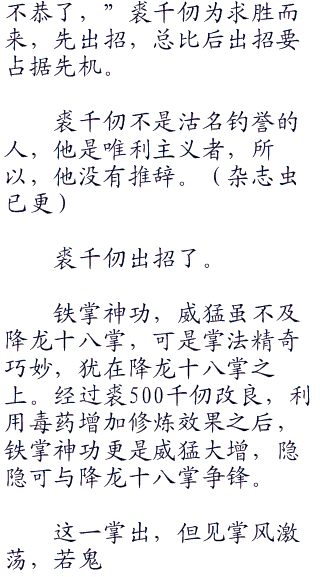 不恭了，”裘千仞为求胜而
来，先出招，总比后出招要
占据先机。
裘千仞不是沽名钓誉的
人，他是唯利主义者，所
以，他没有推辞。（杂志虫
已更）
裘千仞出招了。
铁掌神功，威猛虽不及
降龙十八掌，可是掌法精奇
巧妙，犹在降龙十八掌之
上。经过裘500千仞改良，利
用毒药增加修炼效果之后，
铁掌神功更是威猛大增，隐
隐可与降龙十八掌争锋。
这一掌出，但见掌风激
荡，若鬼